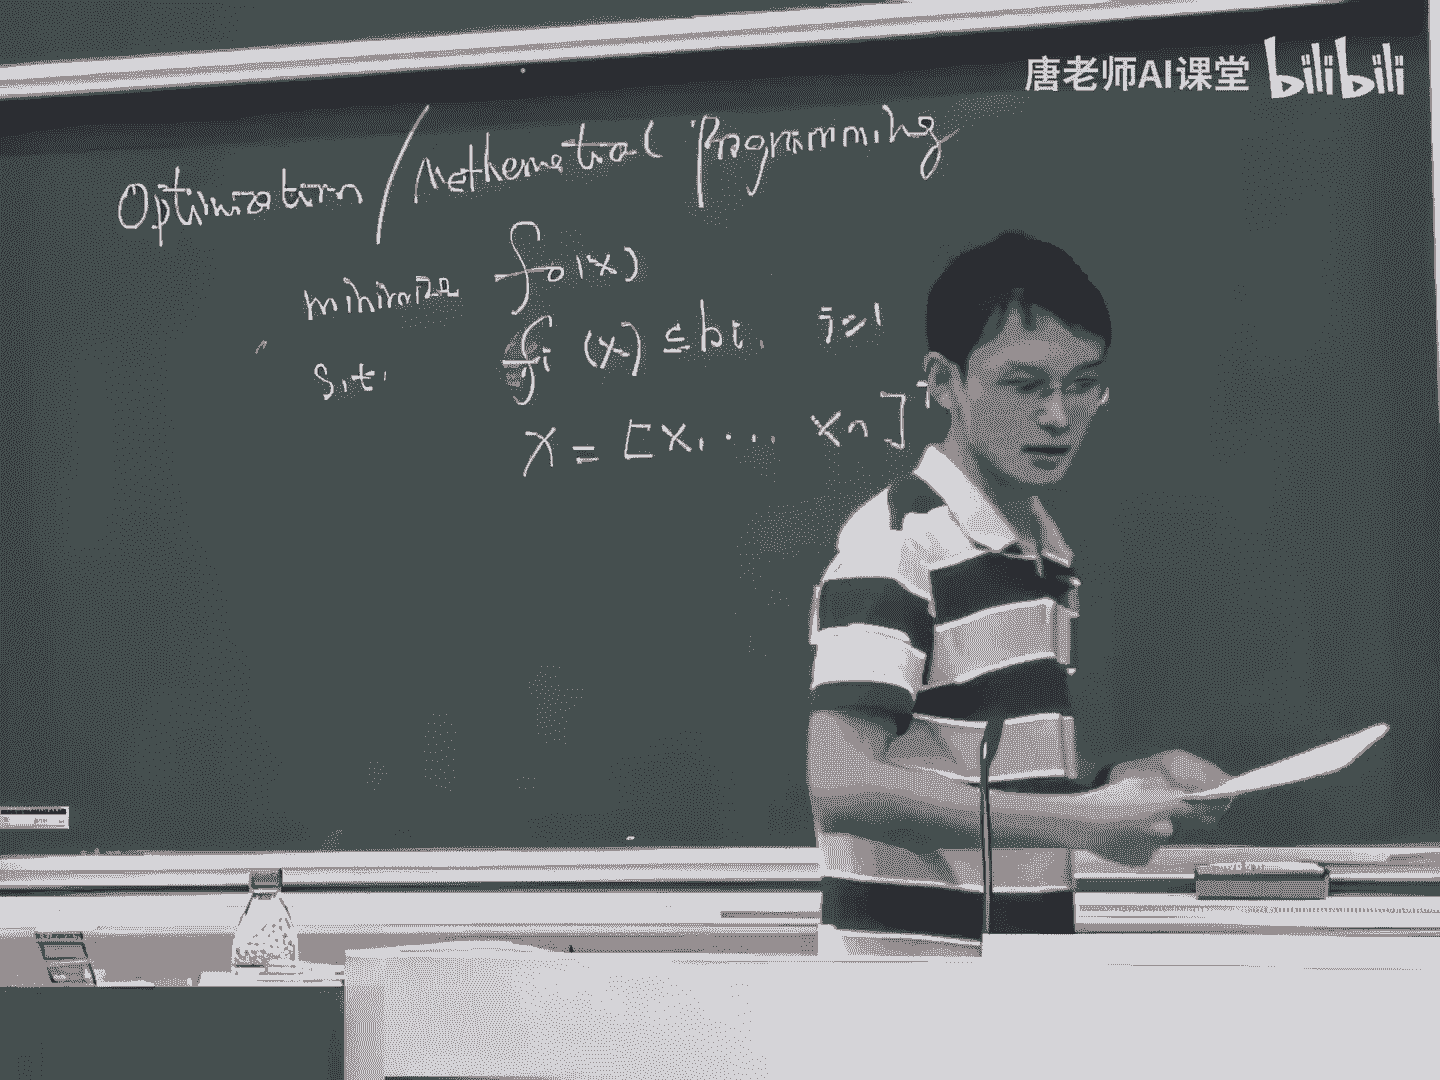 唐老师AI课堂 bilibili
Optimization / Mathematical Programming
minimize f₀(x)
s.t. fᵢ(x) ≤ bᵢ. i=1
x = [x₁ ... xₙ]ᵀ